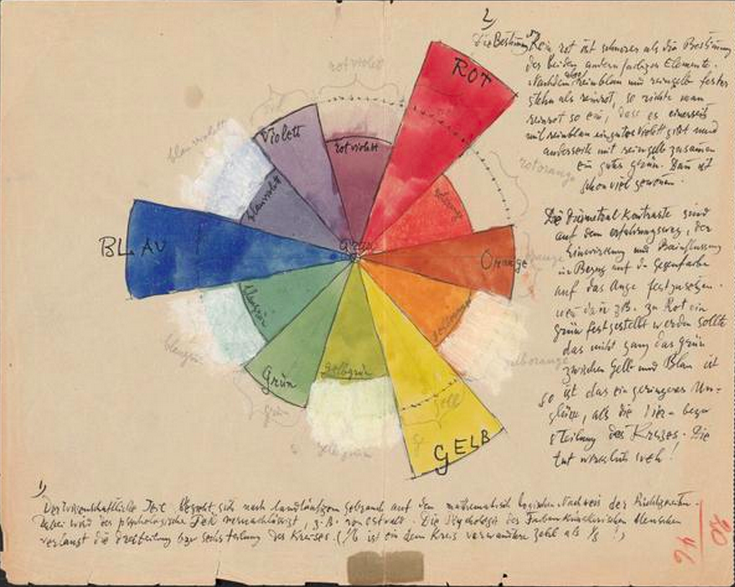 2)
Die Bestimmung von Rein rot ist schwerer als die Bestimmung
der beiden andern farbigen Elemente.
Nachdem aber reinblau und reingelb fester
stehn als reinrot, so richte man
reinrot so ein, dass es einerseits
mit reinblau ein gutes Violett gibt und
anderseits mit reingelb zusammen
ein gutes grün. Dann ist
schon viel gewonnen.
Die Diametral Kontraste sind
auf dem erfahrungsweg, der
Einwirkung und Beeinflussung
in Bezug auf die Gegenfarbe
auf das Auge festzusetzen.
wenn dann zB. zu Rot ein
grün festgestellt werden sollte
das nicht ganz das grün
zwischen Gelb und Blau ist
so ist das ein geringeres Un-
glück, als die
teilung des Kreises. Die
tut wirklich weh!
ROT
rotviolett
Violett
rotviolett
blauviolett
blauviolett
rotorange
rotorange
BLAU
Grau
Orange
orange
blaugrün
blaugrün
gelborange
gelborange
Grün
grün
gelbgrün
gelbgrün
gelb
GELB
1)
Der wissenschaftliche Teil bezieht sich nach landläufigem gebrauch auf den mathematisch logischen Nachweis der Richtigkeiten.
Dabei wird der psychologische Teil vernachlässigt, z.B. von Ostwald. Die Psychologie des Farbenkünstlerischen Menschen
verlangt die dreiteilung bzw sechsteilung des Kreises (1/6 ist ein dem Kreis verwandtere Zahl als 1/8 !)